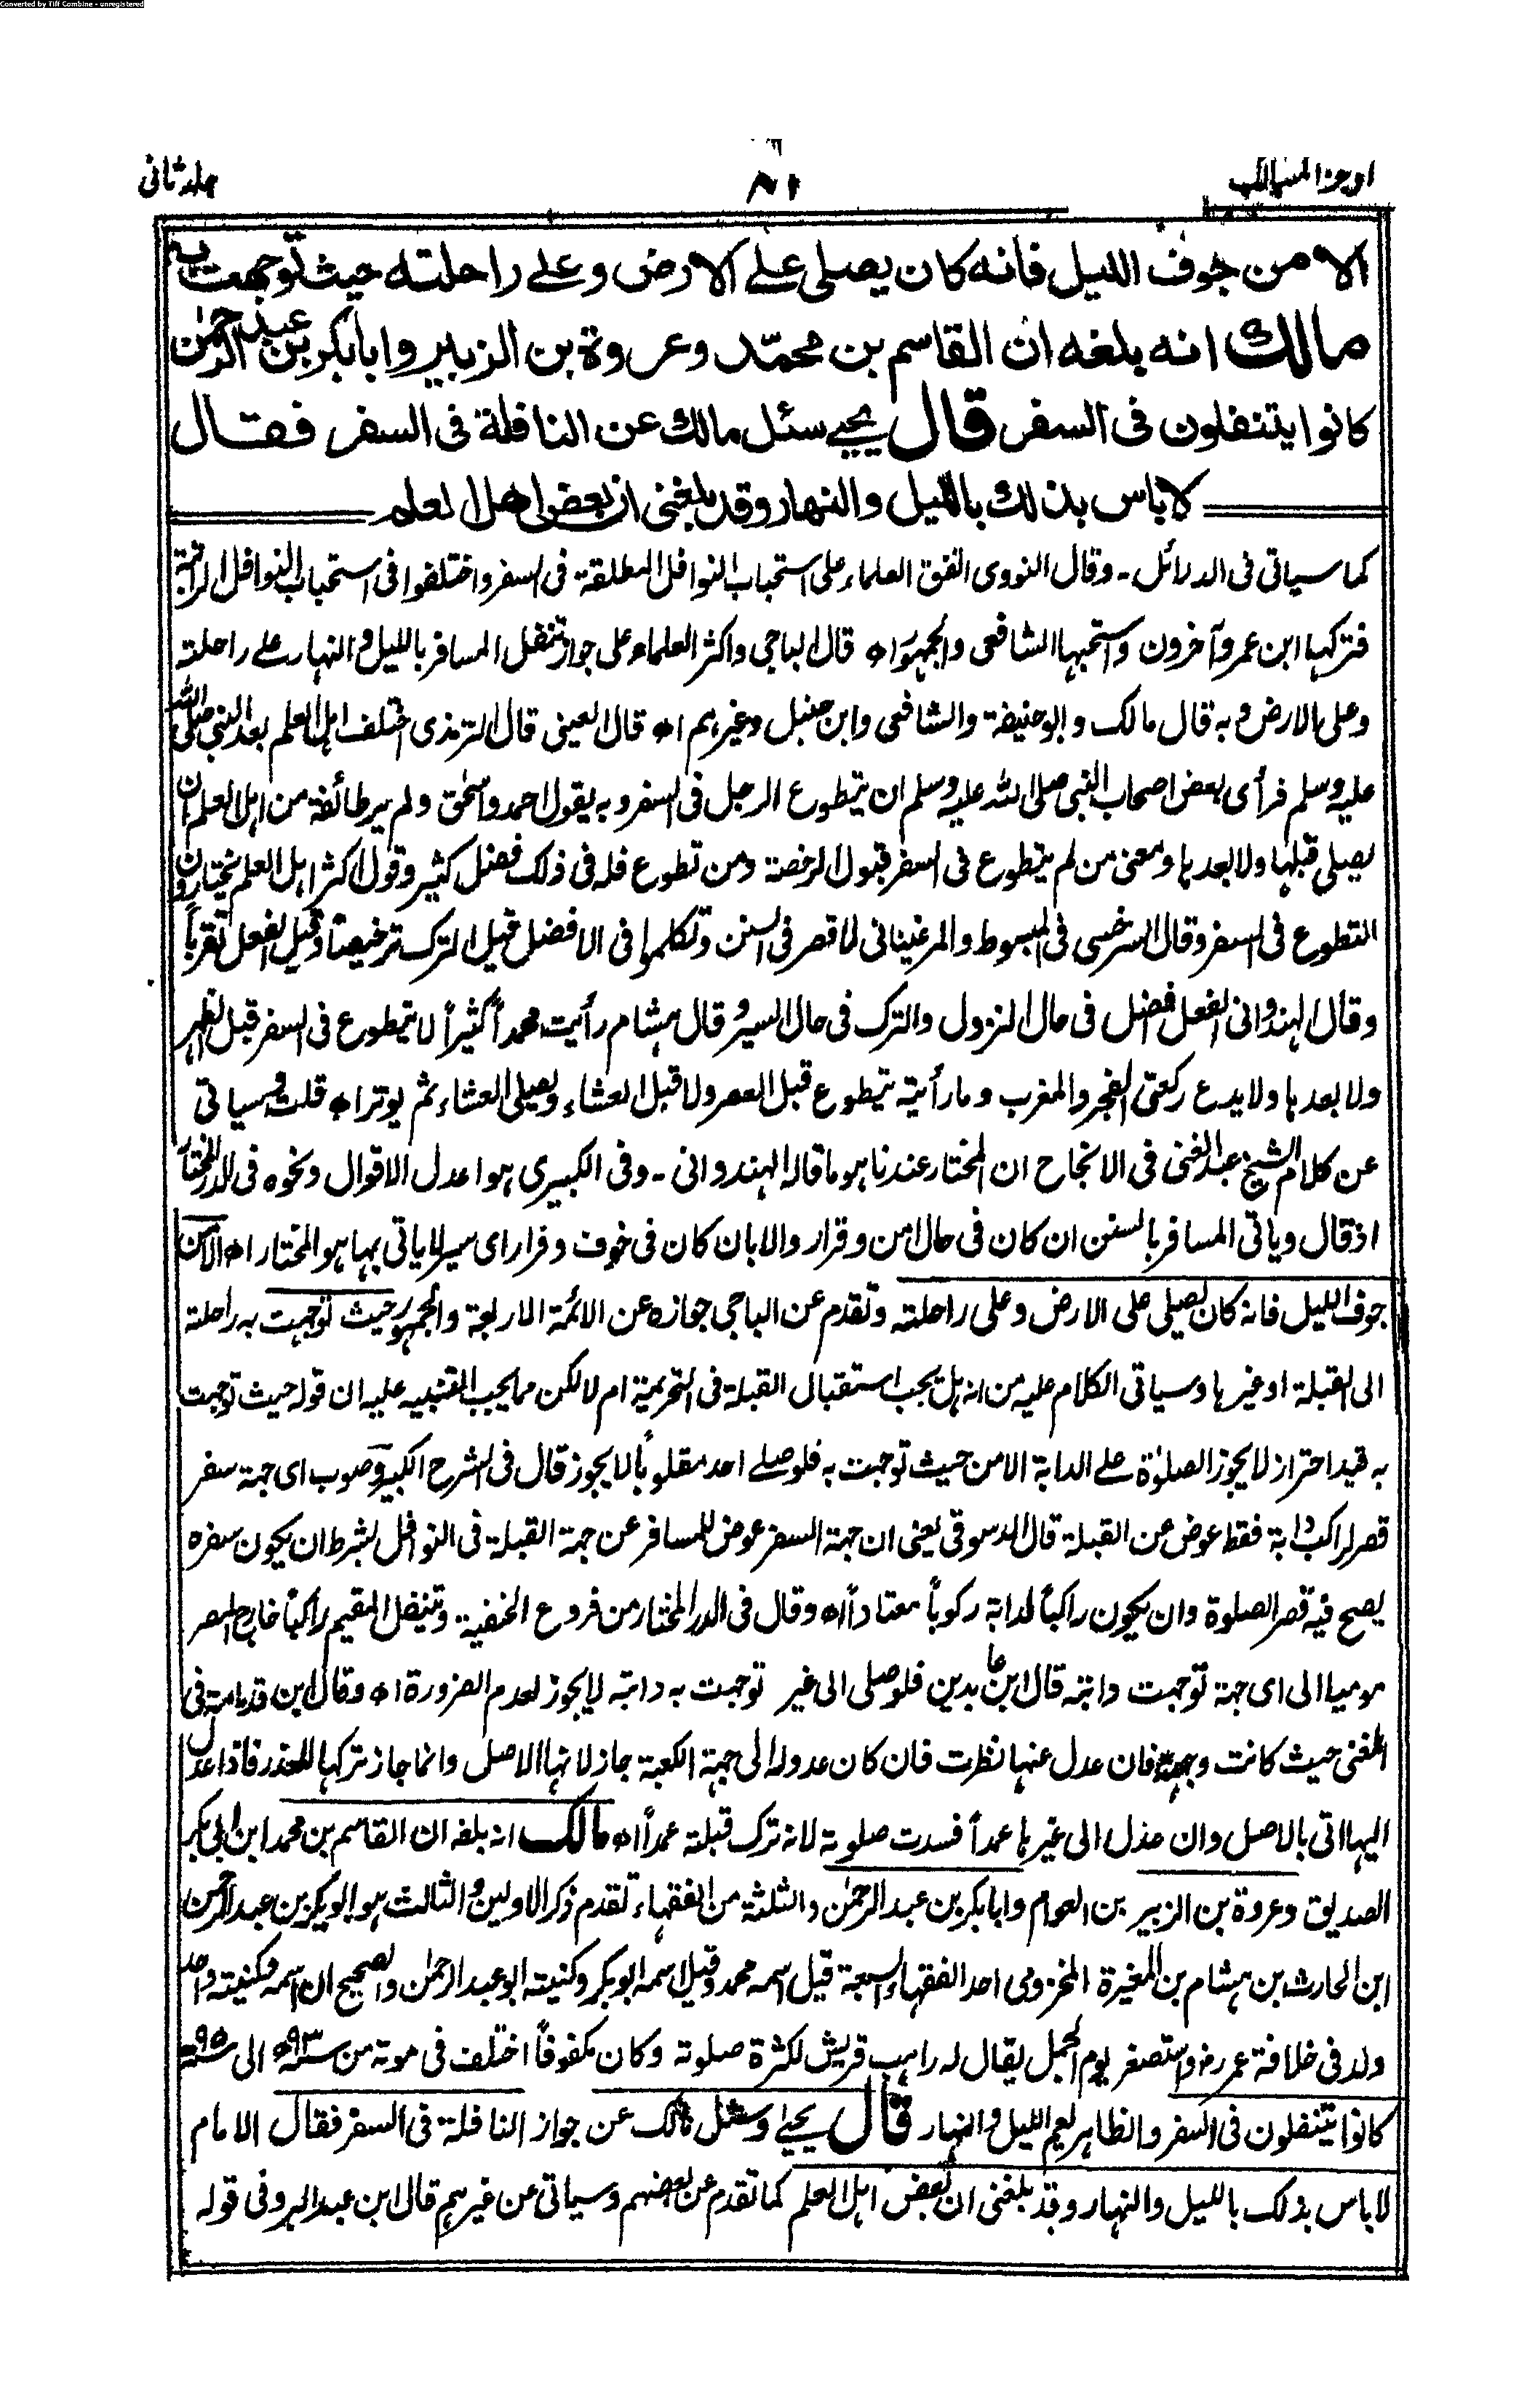 Converted by Tiff Combine - unregistered
اوجز المسالک ٨١ جلد ثانی
الا من جوف الليل فانه كان يصلی علے الارض وعلے راحلته حيث توجهت به
مالك انه بلغه ان القاسم بن محمّد وعروة بن الزبير وابا بكر بن عبد الرحمٰن
كانوا يتنفلون فی السفر قال يحيے سئل مالك عن النافلة فی السفر فقال
لا باس بذلك بالليل والنهار وقد بلغنی ان بعض اهل العلم
كما سياتی فی الدلائل ـ وقال النووی اتفق العلماء علی استحباب النوافل المطلقة فی السفر واختلفوا فی استحباب النوافل الراتبة
فتركها ابن عمر وآخرون واستحبها الشافعی والجمهور اھ قال الباجی واكثر العلماء علی جواز تنفل المسافر بالليل والنهار علے راحلته
وعلی الارض وبه قال مالك وابو حنيفة والشافعی وابن حنبل وغيرهم اھ قال العينی قال الترمذی اختلف اهل العلم بعد النبی صلی الله
عليه وسلم فرأی بعض اصحاب النبی صلی الله عليه وسلم ان يتطوع الرجل فی السفر وبه يقول احمد واسحٰق ولم ير طائفة من اهل العلم ان
يصلی قبلها ولا بعدها ومعنی من لم يتطوع فی السفر قبول الرخصة ومن تطوع فله فی ذلك فضل كثير وقول اكثر اهل العلم يختارون
التطوع فی السفر وقال السرخسی فی المبسوط والمرغينانی لا قصر فی السنن وتكلموا فی الافضل قيل الترك ترخيصاً وقيل الفعل تقرباً
وقال الهندوانی الفعل افضل فی حال النزول والترك فی حال السير وقال هشام رأيت محمداً كثيراً لا يتطوع فی السفر قبل الظهر
ولا بعدها ولا يدع ركعتی الفجر والمغرب وما رأيته يتطوع قبل العصر ولا قبل العشاء ويصلی العشاء ثم يوتر اھ قلت وسياتی
عن كلام الشيخ عبد الغنی فی الانجاح ان المختار عندنا هو ما قاله الهندوانی ـ وفی الكبيری هو اعدل الاقوال ونحوه فی الدر المختار
اذ قال وياتی المسافر بالسنن ان كان فی حال امن وقرار والا بان كان فی خوف وفرار ای سير لا ياتی بها هو المختار اھ الا من
جوف الليل فانه كان يصلی علی الارض وعلی راحلته وتقدم عن الباجی جوازه عن الائمة الاربعة والجمهور حيث توجهت به راحلته
الی القبلة او غيرها وسياتی الكلام عليه من انه هل يجب استقبال القبلة فی التحريمة ام لا لكن مما يجب التنبيه عليه ان قوله حيث توجهت
به قيد احتراز لا يجوز الصلوٰة علے الدابة الا من حيث توجهت به فلو صلے احد مقلوباً لا يجوز قال فی الشرح الكبير وصوب ای جهة سفر
قصر لراكب دابة فقط عوض عن القبلة قال الدسوقی يعنی ان جهة السفر عوض للمسافر عن جهة القبلة فی النوافل بشرط ان يكون سفره
يصح فيه قصر الصلوة وان يكون راكباً لدابة ركوباً معتاداً اھ وقال فی الدر المختار من فروع الحنفية وتنفل المقيم راكباً خارج المصر
موميا الی ای جهة توجهت دابته قال ابن عابدين فلو صلی الی غير توجهت به دابته لا يجوز لعدم الضرورة اھ وقال ابن قدامة فی
المغنی حيث كانت وجهته فان عدل عنها نظرت فان كان عدوله الی جهة الكعبة جاز لانها الاصل وانما جاز تركها للعذر فاذا عدل
اليها اتی بالاصل وان عدل الی غيرها عمداً فسدت صلوته لانه ترك قبلته عمداً اھ مالك انه بلغه ان القاسم بن محمد ابن ابی بكر
الصديق وعروة بن الزبير بن العوام وابا بكر بن عبد الرحمٰن والثلثة من الفقهاء تقدم ذكر الاولين والثالث هو ابو بكر بن عبد الرحمن
ابن الحارث بن هشام بن المغيرة المخزومی احد الفقهاء السبعة قيل اسمه محمد وقيل اسمه ابو بكر وكنيته ابو عبد الرحمٰن والصحيح ان اسمه وكنيته واحد
ولد فی خلافة عمر رض واستصغر يوم الجمل يقال له راهب قريش لكثرة صلوته وكان مكفوفاً اختلف فی موته من سنة ٩٣ھ الی سنة ٩٥ھ
كانوا يتنفلون فی السفر والظاهر يعم الليل والنهار قال يحيے وسئل مالك عن جواز النافلة فی السفر فقال الامام
لا باس بذلك بالليل والنهار وقد بلغنی ان بعض اهل العلم كما تقدم عن بعضهم وسياتی عن غيرهم قال ابن عبد البر وفی قوله